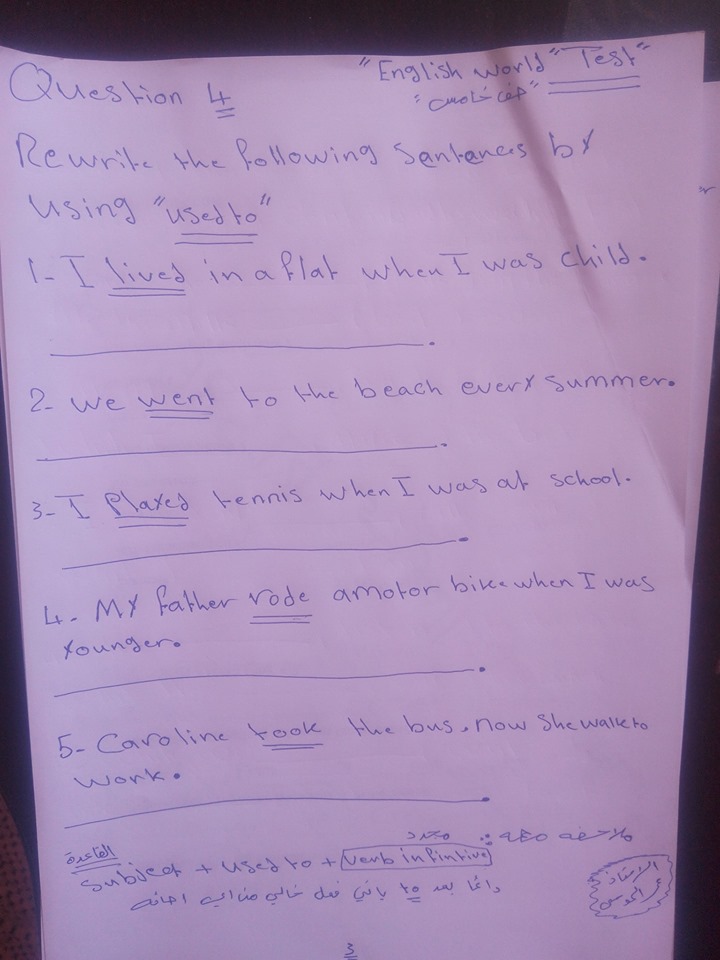 "English world" Test"
Question 4
"صف خامس"
Rewrite the following Santances by
using "used to"
1- I lived in a flat when I was child.
2- we went to the beach every summer.
3- I Played tennis when I was at school.
4- My father rode a motor bike when I was
younger.
5- Caroline took the bus, now she walk to
work.
ملاحظه مهمه :
القاعدة
مجرد
subject + used to + verb infintive
دائما بعد to يأتي فعل خالي من اي اضافه
الاستاذ
3